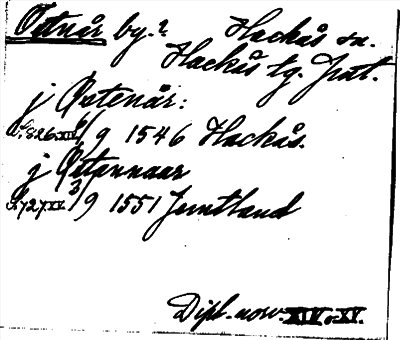 Östnår by.? Hackås sn.
Hackås tg. Jmt.
j Østenår:
S. 826. XIV 6/9 1546 Hackås.
j Østannaar
S. 727 XV. 3/9 1551 Jemtland
Dipl. norv. XIV o. XV.